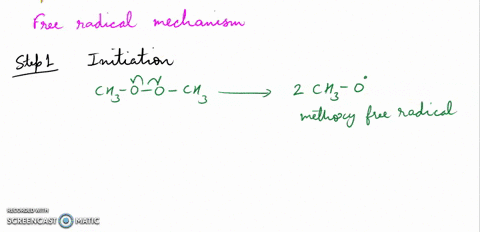 Free radical mechanism
Step 1 Initiation
CH3-O-O-CH3 ⟶ 2 CH3-O•
methoxy free radical
RECORDED WITH
SCREENCAST MATIC